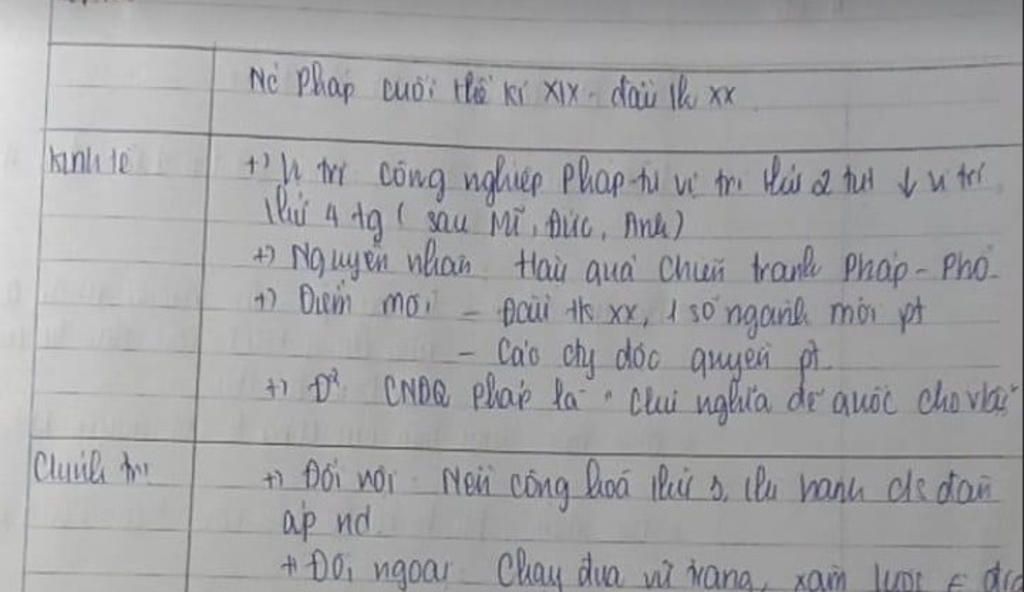 Nc Pháp cuối thế kỉ XIX - đầu tk XX
Kinh tế
+) Vị trí công nghiệp Pháp từ vị trí thứ 2 tụt ↓ vị trí
thứ 4 tg ( sau Mĩ, Đức, Anh)
+) Nguyên nhân Hậu quả chiến tranh Pháp - Phổ
+) Điểm mới - Đầu tk XX, 1 số ngành mới pt
- Các cty độc quyền pt
+) Đ² CNĐQ Pháp là " chủ nghĩa đế quốc cho vay"
Chính trị
+) Đối nội Nền cộng hoà thứ 3, thi hành cs đàn
áp nd
+) Đối ngoại Chạy đua vũ trang, xâm lược